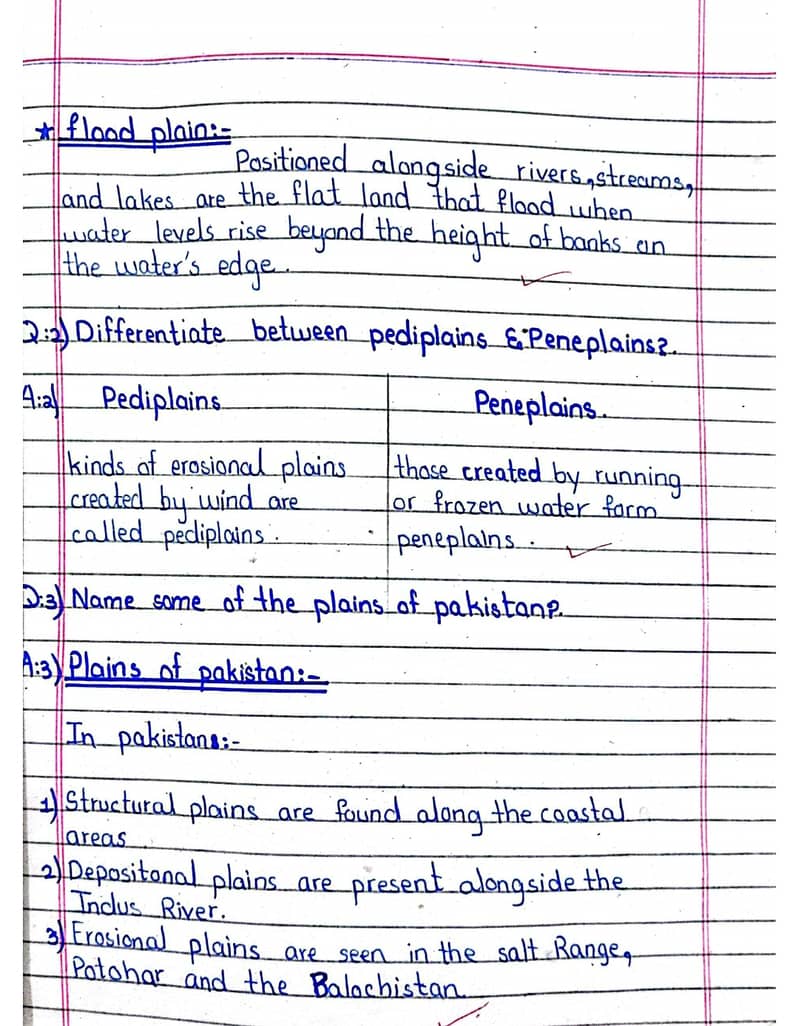 * flood plain:-
Positioned alongside rivers, streams,
and lakes are the flat land that flood when
water levels rise beyond the height of banks an
the water's edge.
Q:2) Differentiate between pediplains & Peneplains?.
A:2) Pediplains Peneplains.
kinds of erosional plains those created by running
created by wind are or frozen water form
called pediplains. peneplains.
Q:3) Name some of the plains of pakistan?.
A:3) Plains of pakistan:-
In pakistans:-
1) Structural plains are found along the coastal
areas
2) Depositonal plains are present alongside the
Indus River.
3) Erosional plains are seen in the salt Range,
Potohar and the Balochistan.